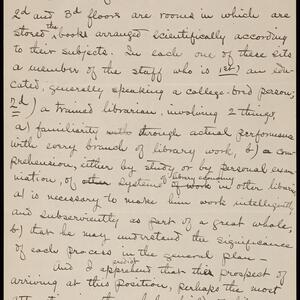 2d and 3d floors are rooms in which are
stored the books arranged scientifically according
to their subjects. In each one of these sits
a member of the staff who is 1st) an edu-
cated, generally speaking a college-bred person;
2d) a trained librarian, involving 2 things,
a) familiarity with through actual performance
with every branch of library work, b) a com-
prehension, either by study or by personal exam-
ination, of other systems of work library economy in other libraries
a) is necessary to make him work intelligently
and subserviently as part of a great whole,
b) that he may understand the significance
of each process in the general plan—
And I apprehend that the prospect of
arriving at this position, perhaps the most